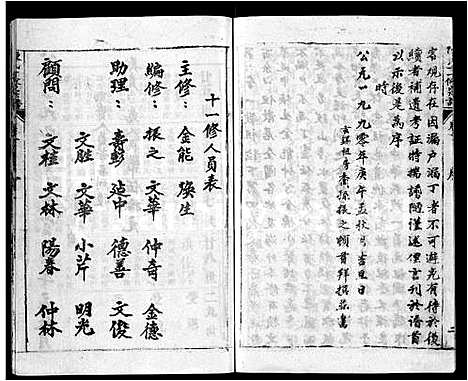 客观存在因漏户漏丁者不可避免有待於後
續者補遺考証時撰譜隨謹述俚言刊於譜首
以示後是為序
時
公元一九九零年庚午孟秋月吉旦日
玄孫振之頓首拜撰
序
十一修人員表
主修：金能 煥生
編修：振之 文華 仲奇 金德
助理：壽彭 延中 德善 文俊
文胜 文華 小芹 明光
顧問：文桂 文林 陽春 仲林